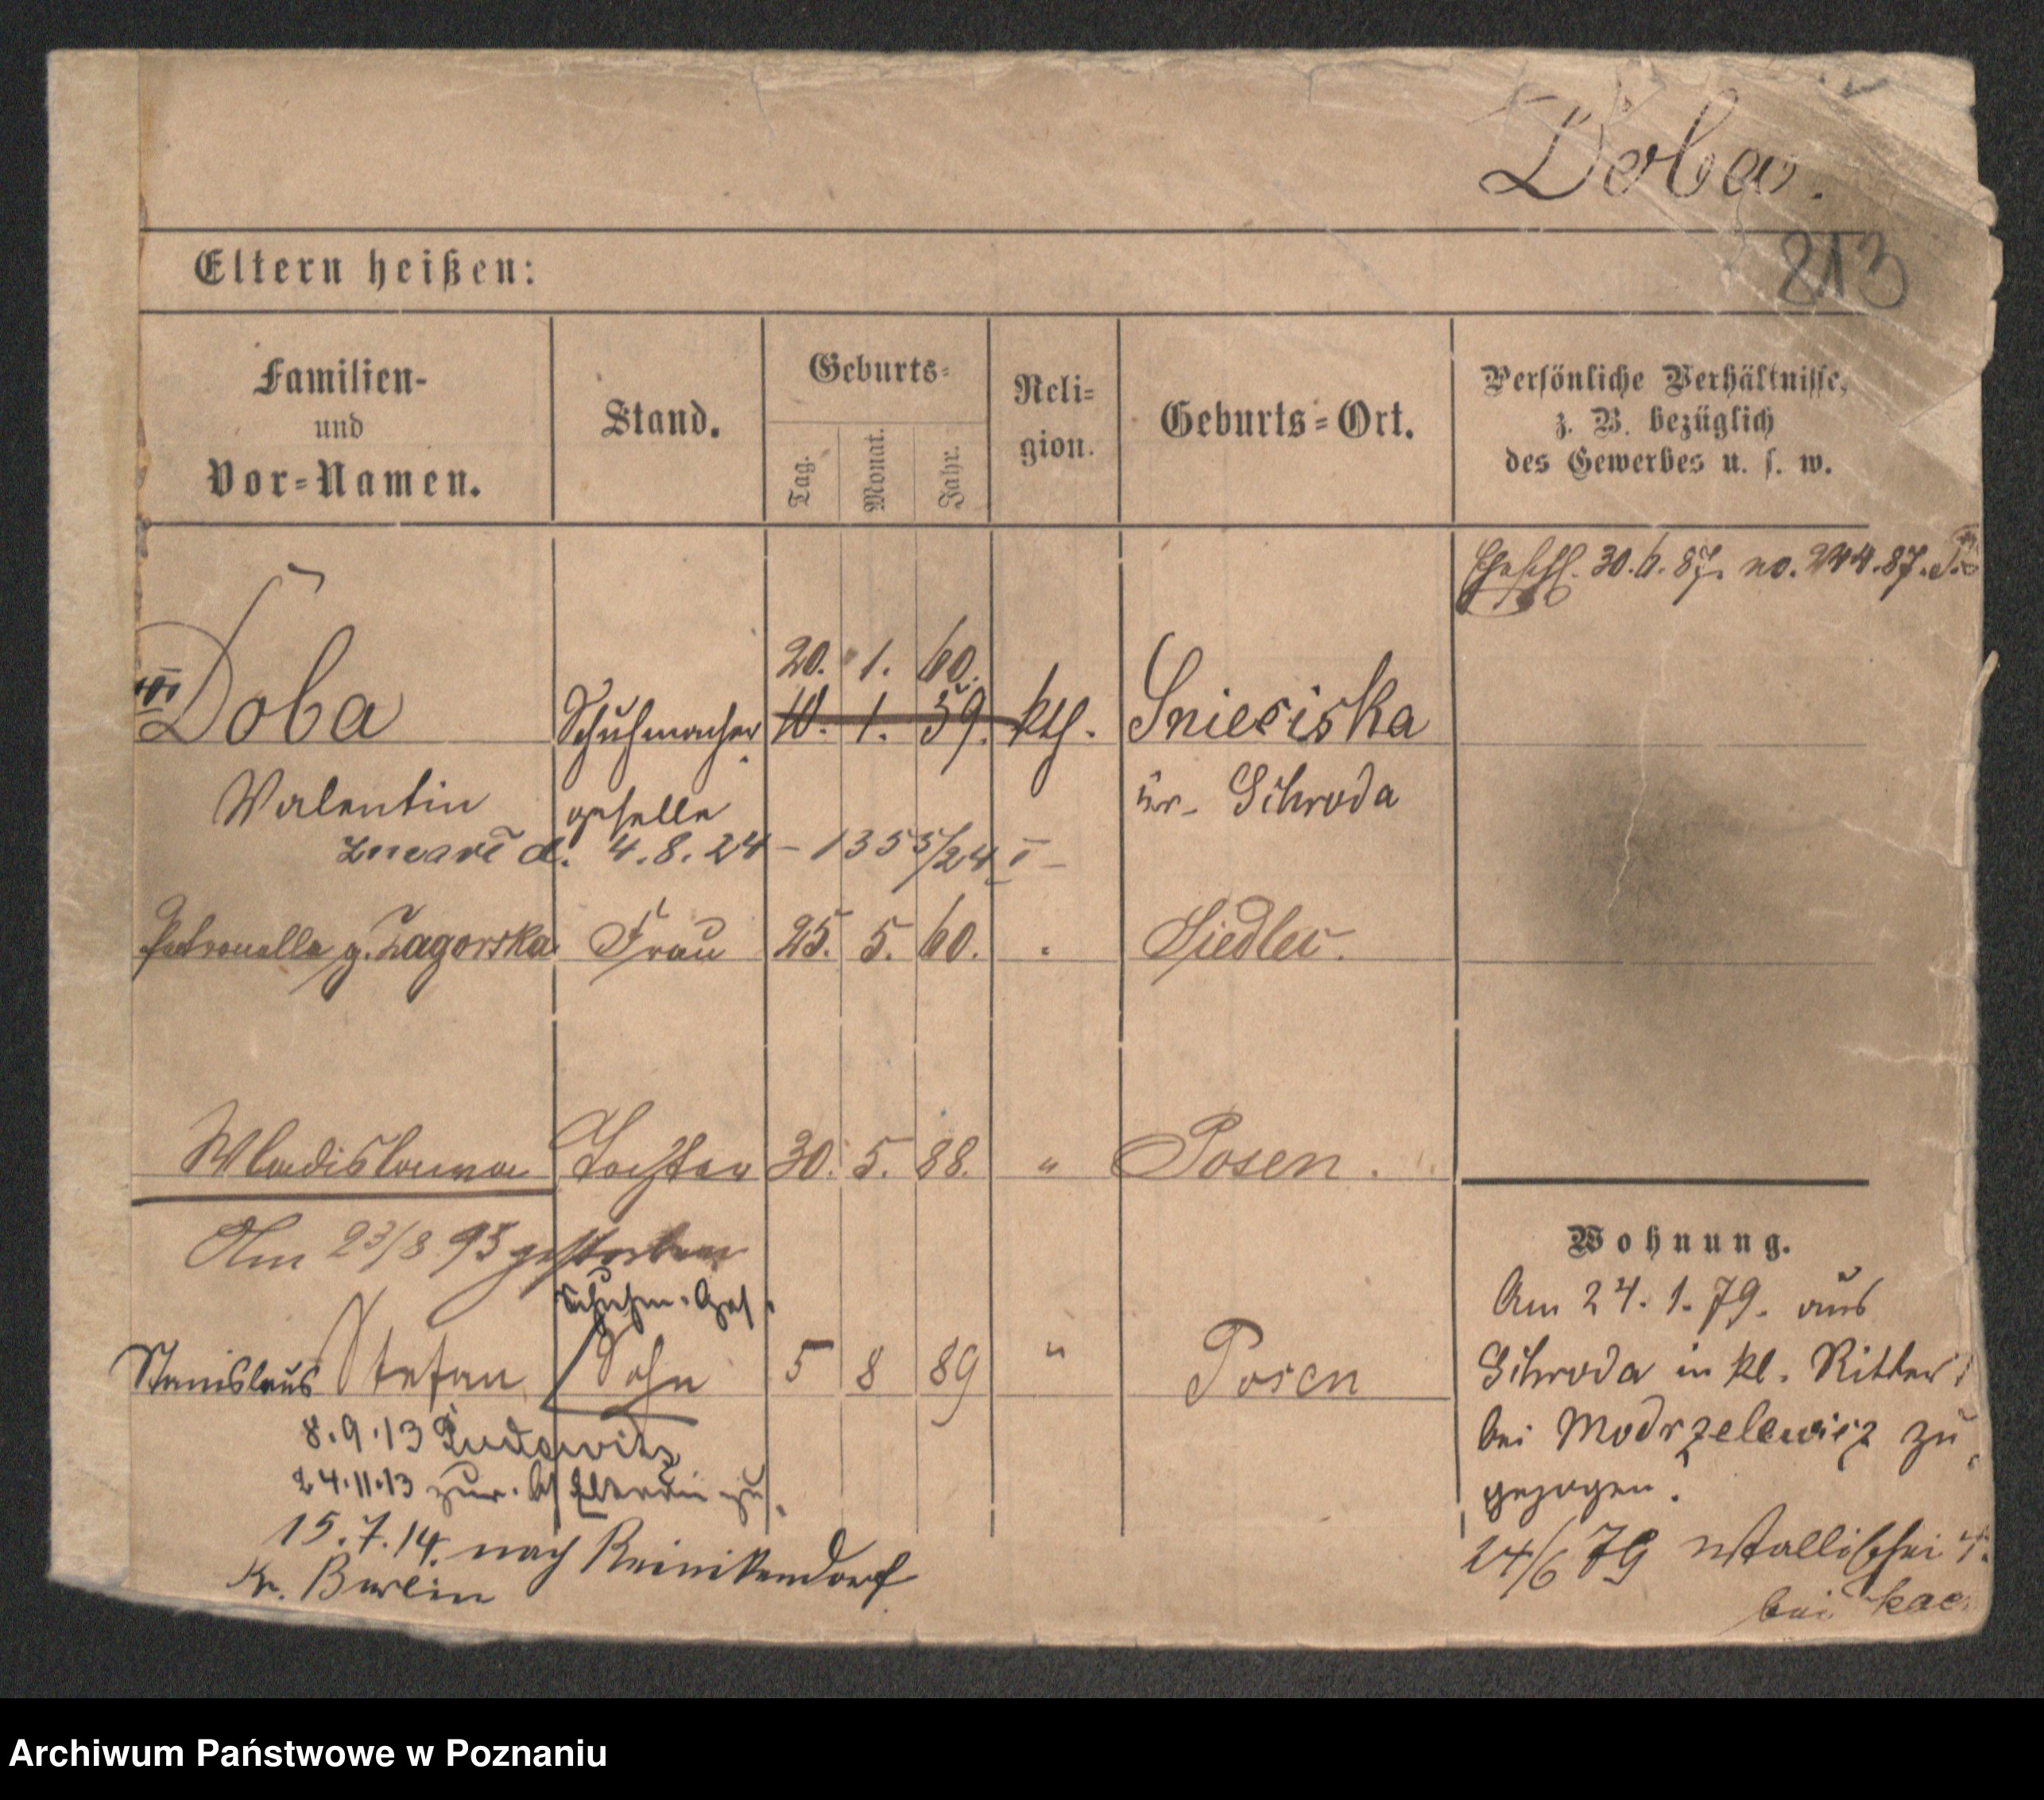 Doba.
213
Eltern heißen:
Familien-
und
Vor-Namen.
Stand.
Geburts-
Tag.
Monat.
Jahr.
Reli-
gion.
Geburts-Ort.
Persönliche Verhältnisse,
z. B. bezüglich
des Gewerbes u. s. w.
30.6.87. no. 244.87.
20. 1. 60.
Doba Schuhmacher 10. 1. 59. kth. Snieciska
Valentin geselle Kr. Schroda
zmarł d. 4.8.24 - 1355/24 I -
Petronella g. Zagorska Frau 25. 5. 60. " Siedlec.
Wladislawa Tochter 30. 5. 88. " Posen.
Am 23/8 93 gestorben
Schuhm. Ges.
Stanislaus Stefan Sohn 5 8 89 " Posen
8.9.13 Ludowitz
24.11.13 zur.
15.7.14. nach Reinikendorf
Kr. Berlin
Wohnung.
Am 24.1.79. aus
Schroda in kl. Ritter
bei Modrzelewicz zu
gezogen.
24/6 79 Wallischei
bei
Archiwum Państwowe w Poznaniu